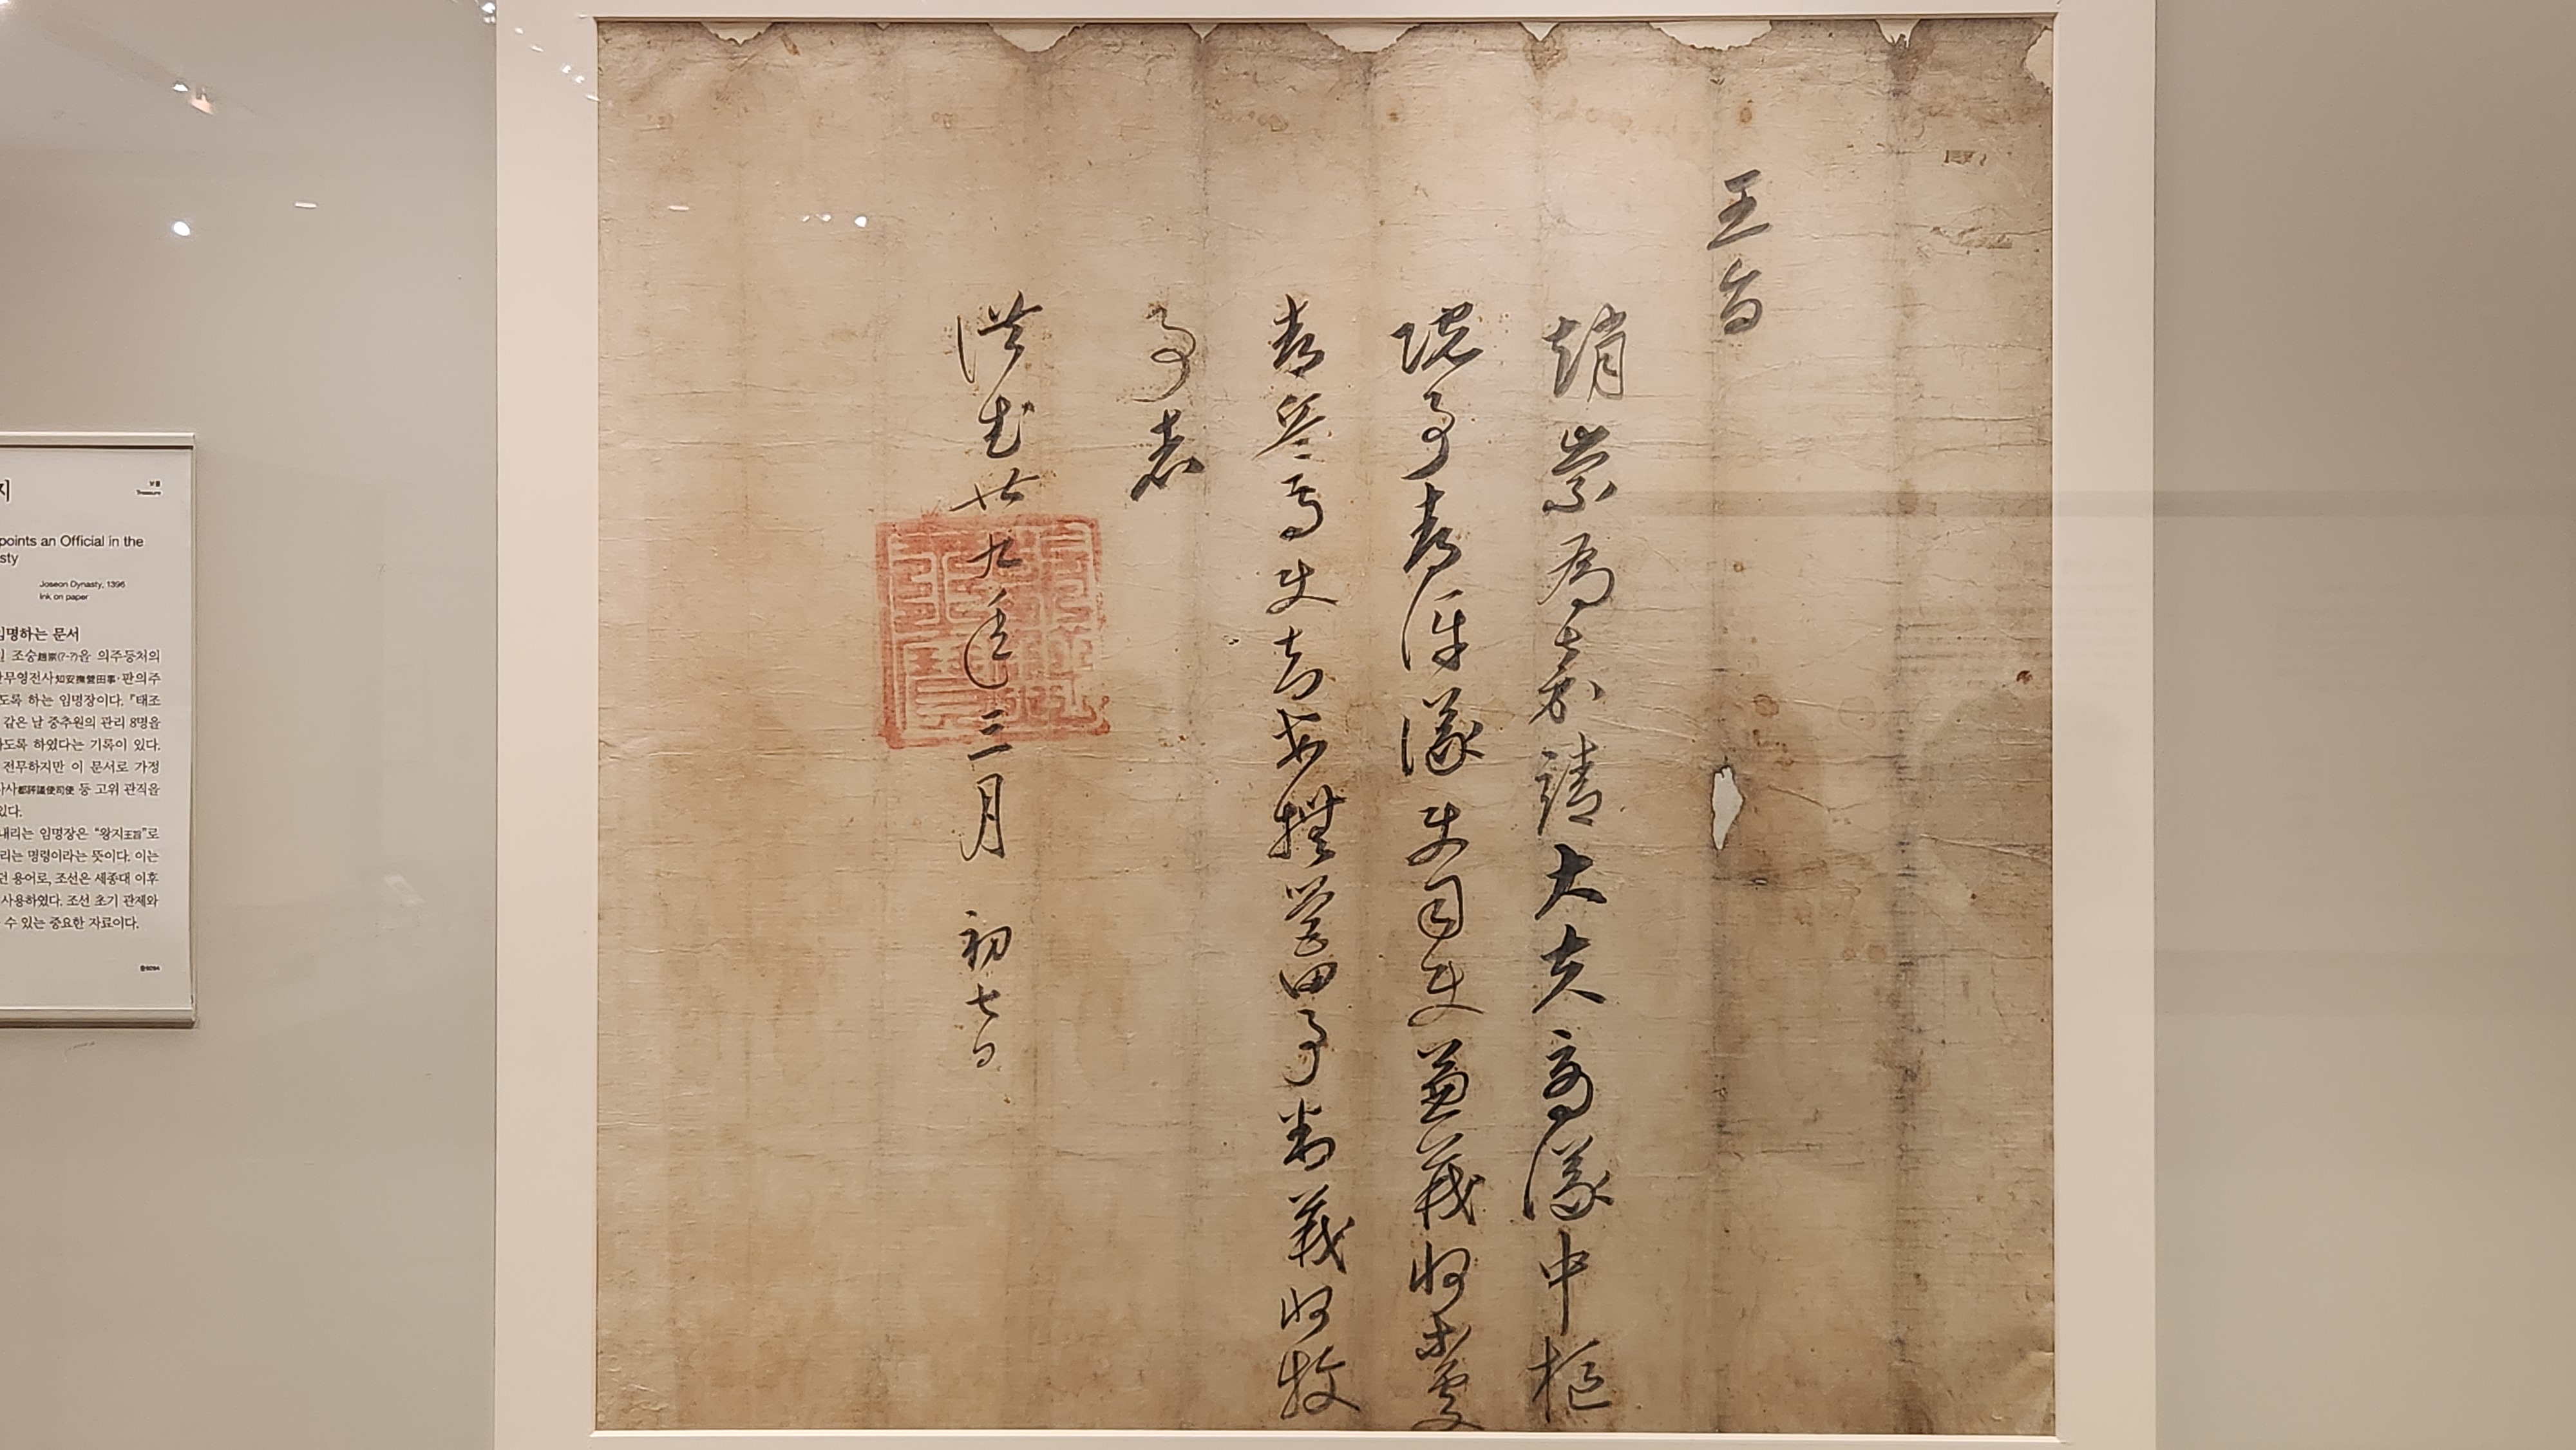 王旨
趙崇爲嘉靖大夫商議中樞
院事都評議使司使兼義州等處
都兵馬使知安撫營田事判義州牧
事者
洪武卄九年三月初七日
지
보물
Treasure
points an Official in the
sty
Joseon Dynasty, 1396
Ink on paper
임명하는 문서
조숭趙崇(?-?)을 의주등처의
안무영전사知安撫營田事·판의주
도록 하는 임명장이다. 『태조
같은 날 중추원의 관리 8명을
하도록 하였다는 기록이 있다.
전무하지만 이 문서로 가정
사사都評議使司使 등 고위 관직을
있다.
내리는 임명장은 “왕지王旨”로
리는 명령이라는 뜻이다. 이는
던 용어로, 조선은 세종대 이후
사용하였다. 조선 초기 관제와
수 있는 중요한 자료이다.